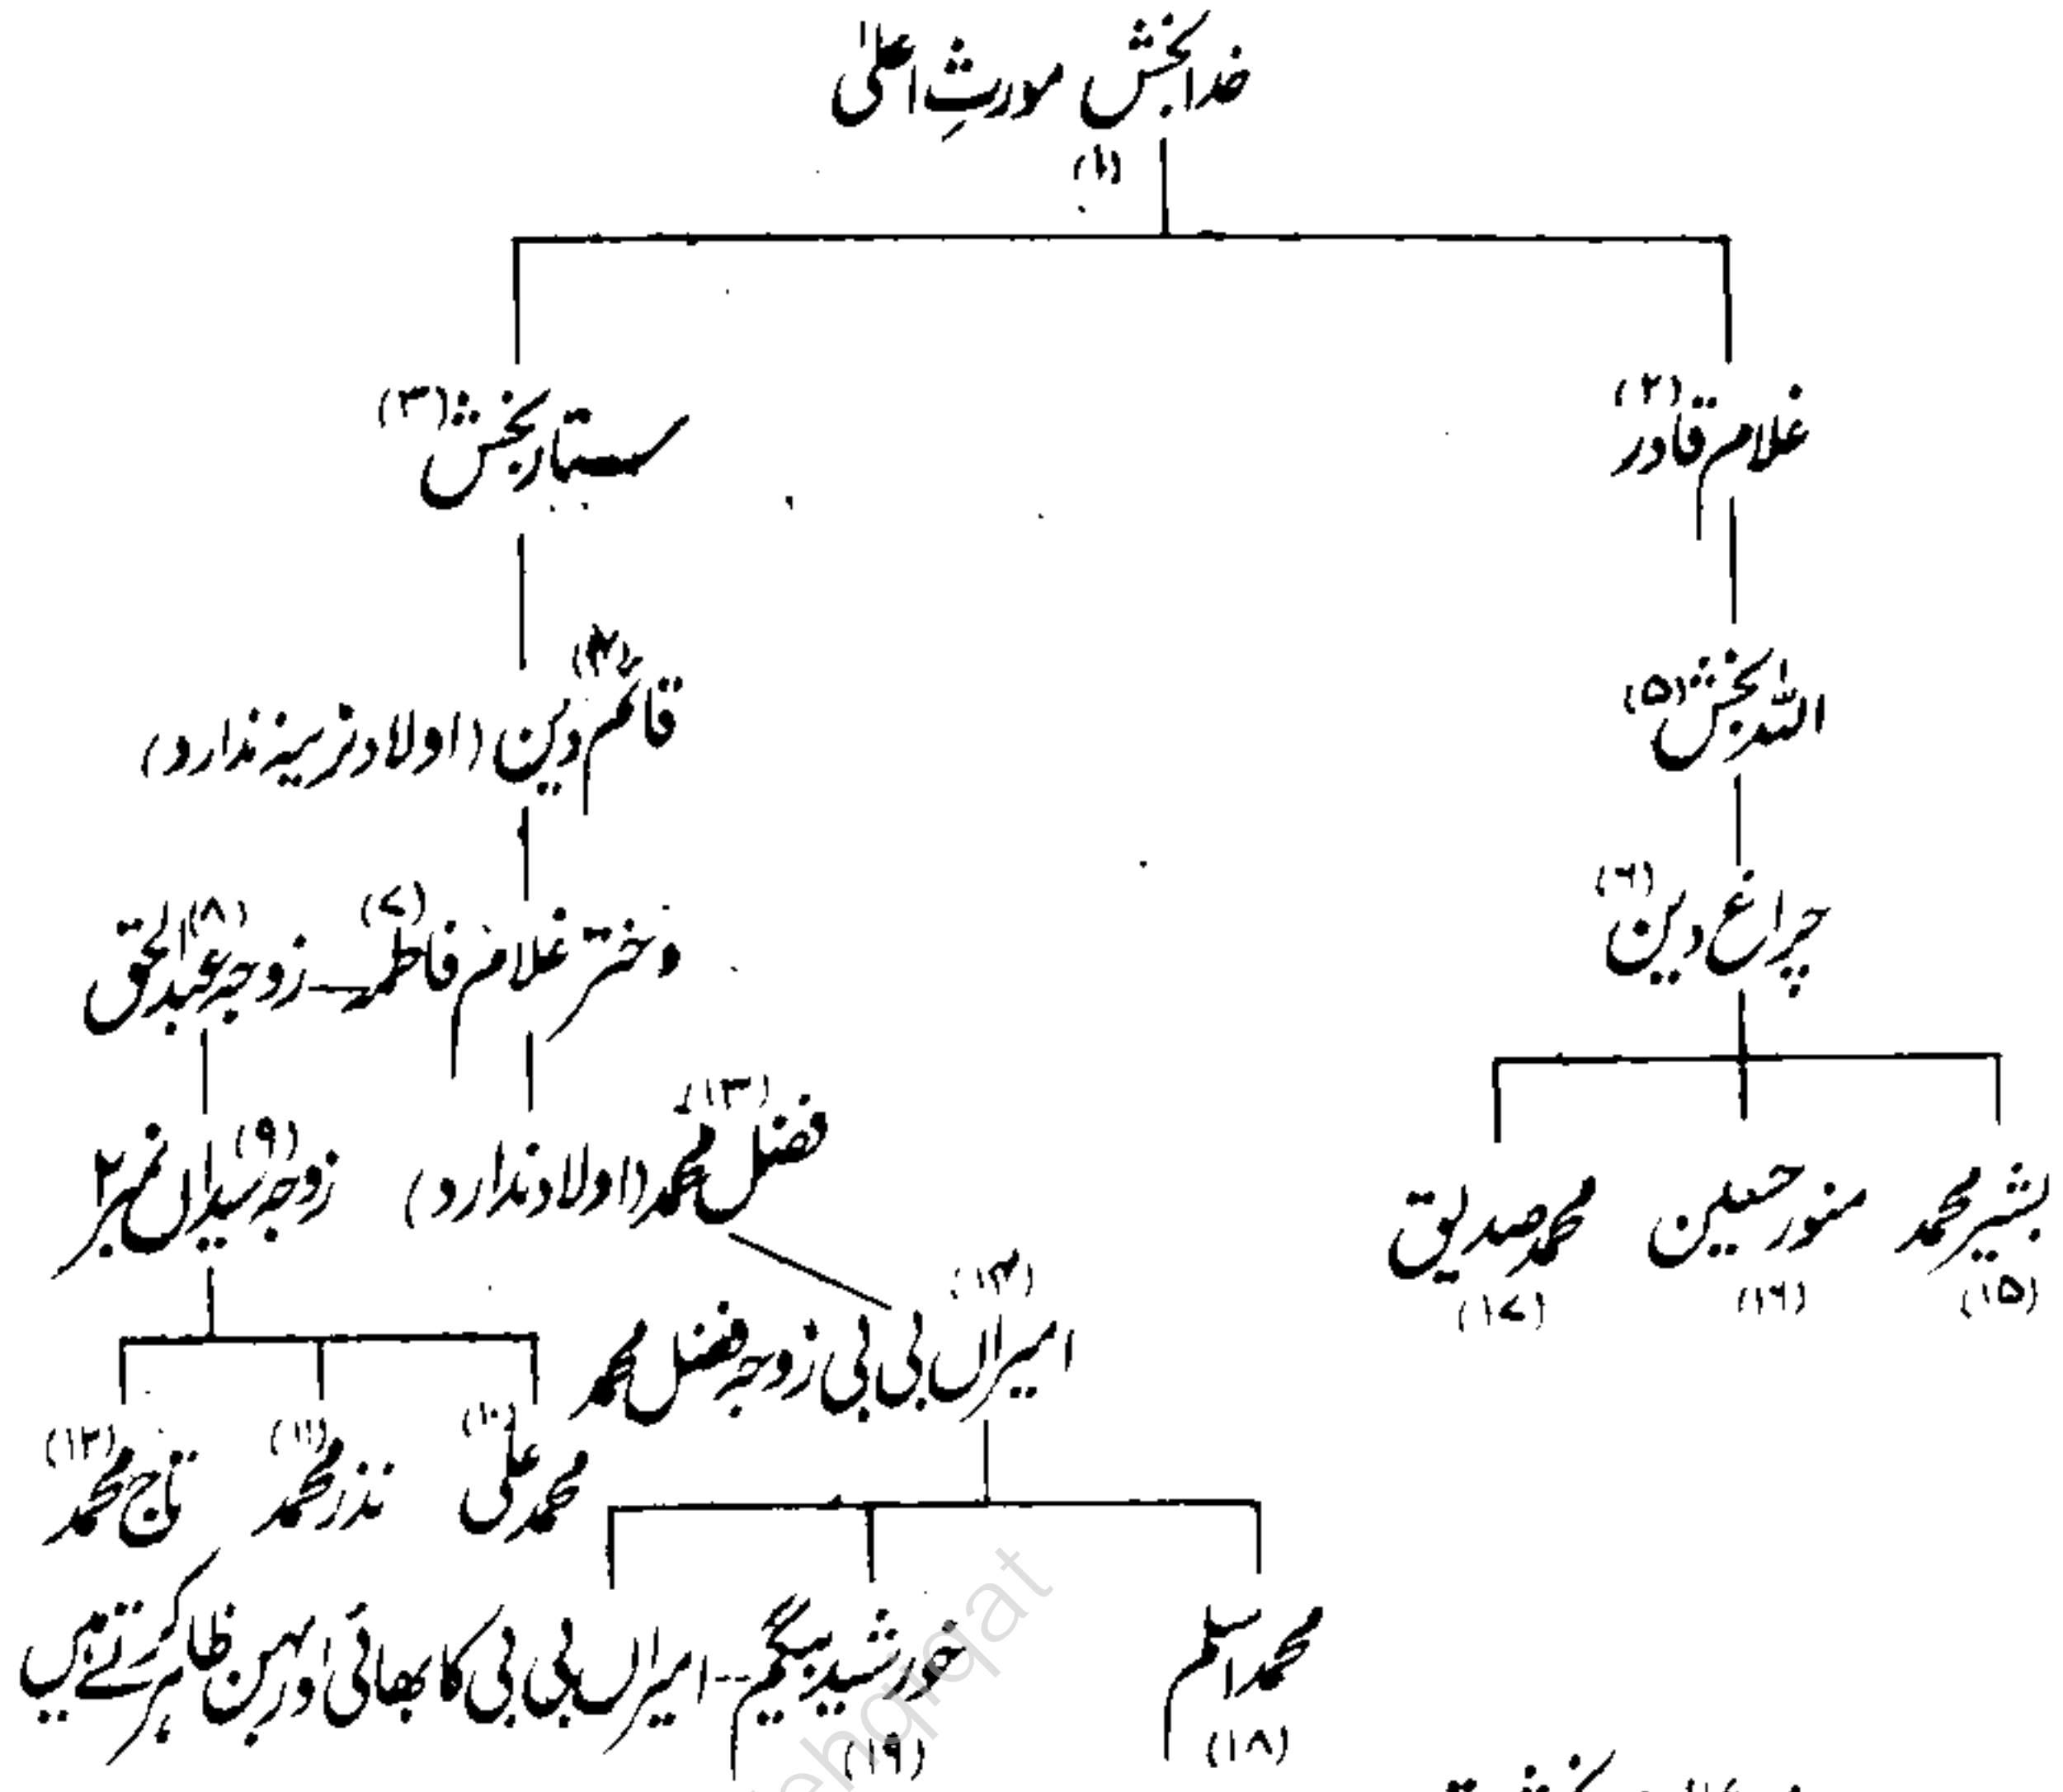 خدا بخش مورثِ اعلیٰ
(۱)
غلام قادر (۲)
ستار بخش (۳)
اللہ بخش (۵)
قائم دین (۴) (اولاد نرینہ ندارد)
چراغ دین (۶)
دختر غلام فاطمہ (۷) — زوجہ عبدالحق (۸)
فضل محمد (۱۳) (اولاد ندارد)
زوجہ سیداں نمبر ۲ (۹)
بشیر محمد (۱۵)
منور حسین (۱۶)
محمد صدیق (۱۷)
امیراں بی بی زوجہ فضل محمد (۱۴)
محمد علی (۱۰)
نذر محمد (۱۱)
تاج محمد (۱۲)
محمد اسلم (۱۸)
خورشید بیگم (۱۹) -- امیراں بی بی کا بھائی اور بہن ظاہر کرتے ہیں
ehqiqat